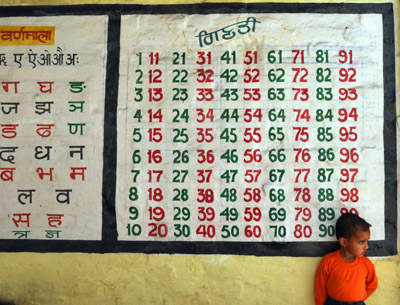 वर्णमाला
ए ऐ ओ औ अः
ग घ ङ
ज झ ञ
ड ढ ण
द ध न
ब भ म
ल व
स ह
त्र ज्ञ
ਗਿਣਤੀ
1 11 21 31 41 51 61 71 81 91
2 12 22 32 42 52 62 72 82 92
3 13 23 33 43 53 63 73 83 93
4 14 24 34 44 54 64 74 84 94
5 15 25 35 45 55 65 75 85 95
6 16 26 36 46 56 66 76 86 96
7 17 27 37 47 57 67 77 87 97
8 18 28 38 48 58 68 78 88 98
9 19 29 39 49 59 69 79 89
10 20 30 40 50 60 70 80 90